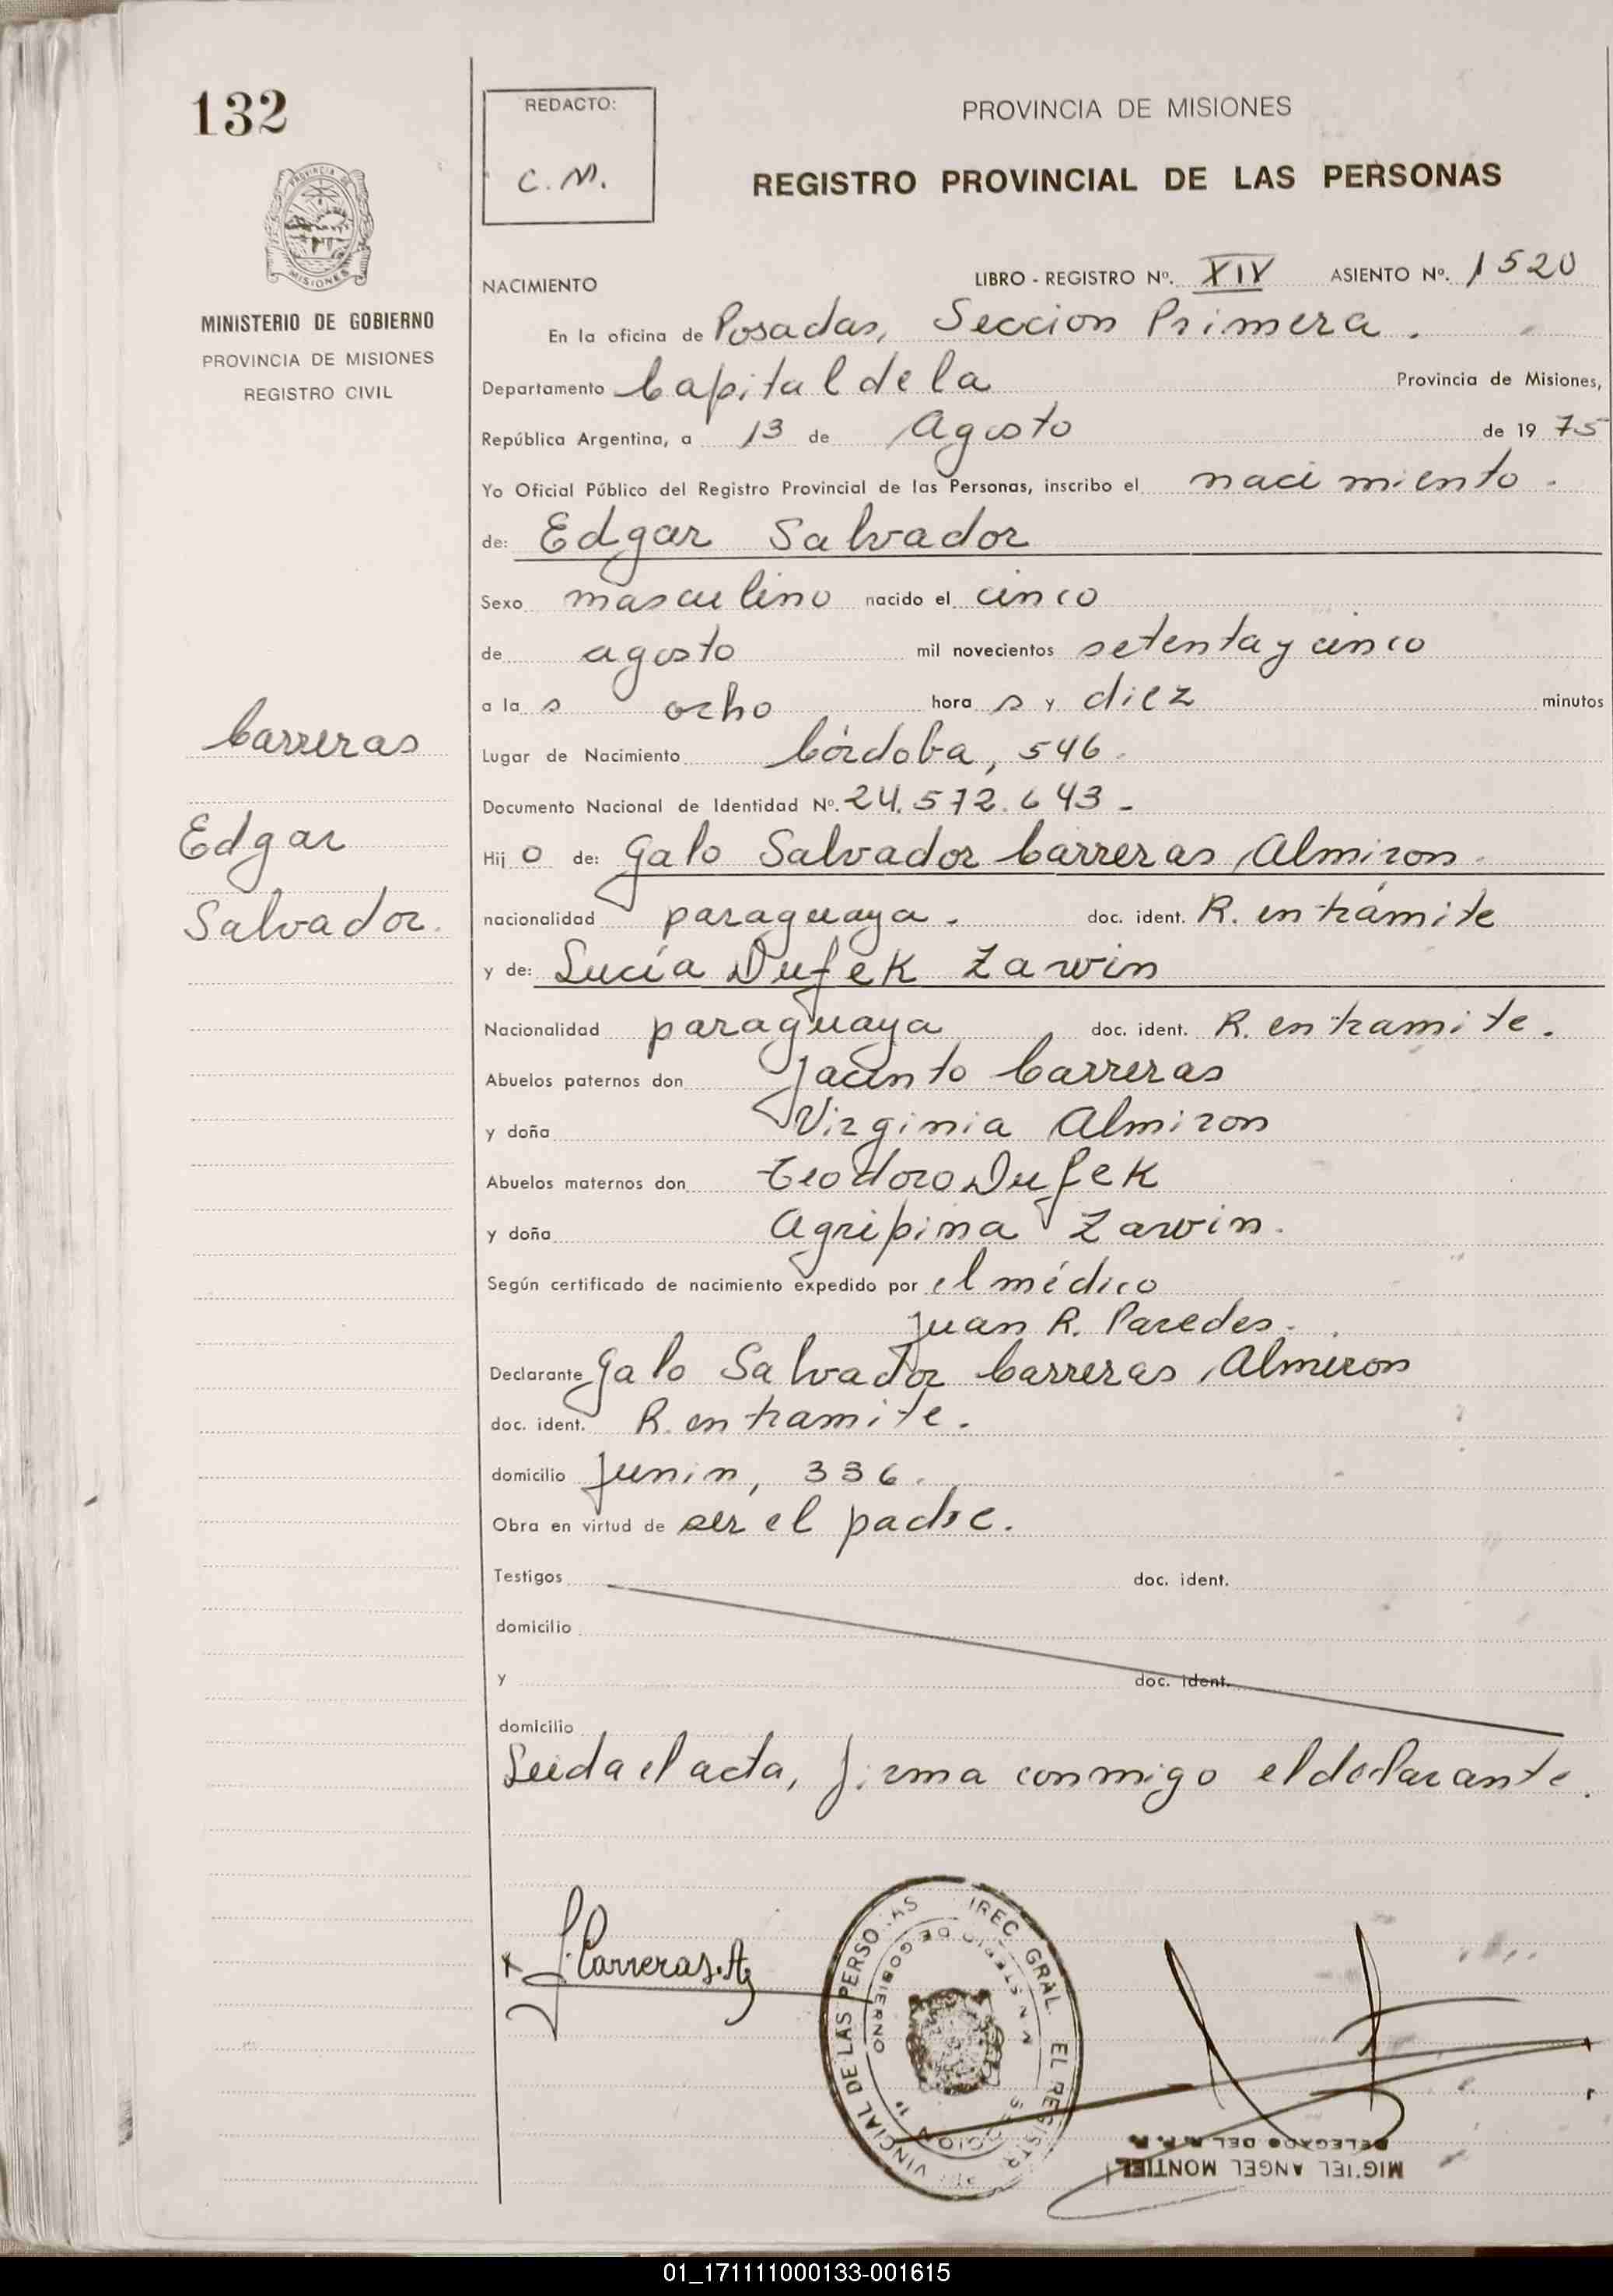 132
REDACTO:
C. M.
PROVINCIA DE MISIONES
REGISTRO PROVINCIAL DE LAS PERSONAS
MINISTERIO DE GOBIERNO
PROVINCIA DE MISIONES
REGISTRO CIVIL
NACIMIENTO LIBRO - REGISTRO Nº. XIV ASIENTO Nº. 1520
En la oficina de Posadas, Seccion Primera.
Departamento Capital de la Provincia de Misiones,
República Argentina, a 13 de Agosto de 19 75
Yo Oficial Público del Registro Provincial de las Personas, inscribo el nacimiento.
de: Edgar Salvador
Sexo masculino nacido el cinco
de agosto mil novecientos setenta y cinco
a la s ocho hora s y diez minutos
Carreras
Edgar
Salvador.
Lugar de Nacimiento Córdoba, 546.
Documento Nacional de Identidad Nº. 24.572.643 -
Hij o de: Galo Salvador Carreras Almiron.
nacionalidad paraguaya. doc. ident. R. en trámite
y de: Lucía Dufek Zarwin
Nacionalidad paraguaya doc. ident. R. en tramite.
Abuelos paternos don Jacinto Carreras
y doña Virginia Almiron
Abuelos maternos don Teodoro Dufek
y doña Agripina Zarvin.
Según certificado de nacimiento expedido por el médico
Juan R. Paredes.
Declarante Galo Salvador Carreras Almiron
doc. ident. R. en tramite.
domicilio Junin, 336.
Obra en virtud de ser el padre.
Testigos doc. ident.
domicilio
y doc. ident.
domicilio
Leida el acta, firma conmigo el declarante.
Carreras. A
MIGUEL ANGEL MONTIEL
DELEGADO DEL R. P. P.
01_171111000133-001615